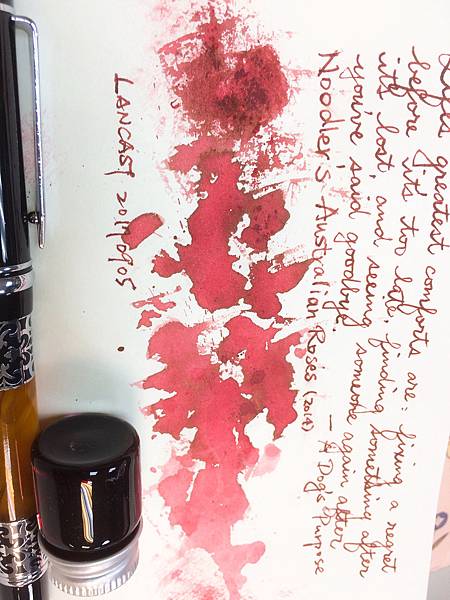 Life's greatest comforts are: fixing a regret
before it's too late, finding something after
it's lost, and seeing someone again after
you've said goodbye
— A Dog's Purpose
Noodler's Australian Roses (2014)
LANCAST 20190905